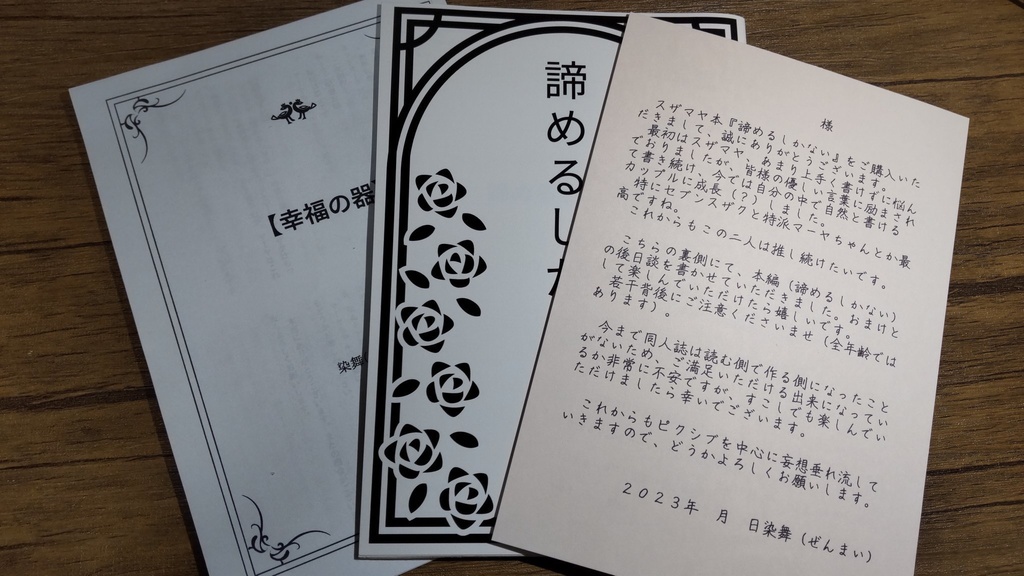 【幸福の器
染舞
諦めるし
様
スザマヤ本『諦めるしかない』をご購入いた
だきまして、誠にありがとうございます。
最初はスザマヤ、あまり上手く書けずに悩ん
でおりましたが、皆様の優しい言葉に励まされ
て書き続け、今では自分の中で自然と書ける
カップルに成長（？）しました。
特にセブンスザクと特派マーヤちゃんとか最
高ですね。
これからもこの二人は推し続けたいです。
こちらの裏側にて、本編（諦めるしかない）
の後日談を書かせていただきました。おまけと
して楽しんでいただけたら嬉しいです。
若干背後にご注意くださいませ（全年齢では
あります）。
今まで同人誌は読む側で作る側になったこと
がないため、ご満足いただける出来になってい
るか非常に不安ですが、すこしでも楽しんでい
ただけましたら幸いでございます。
これからもピクシブを中心に妄想垂れ流して
いきますので、どうかよろしくお願いします。
２０２３年　月　日染舞（ぜんまい）